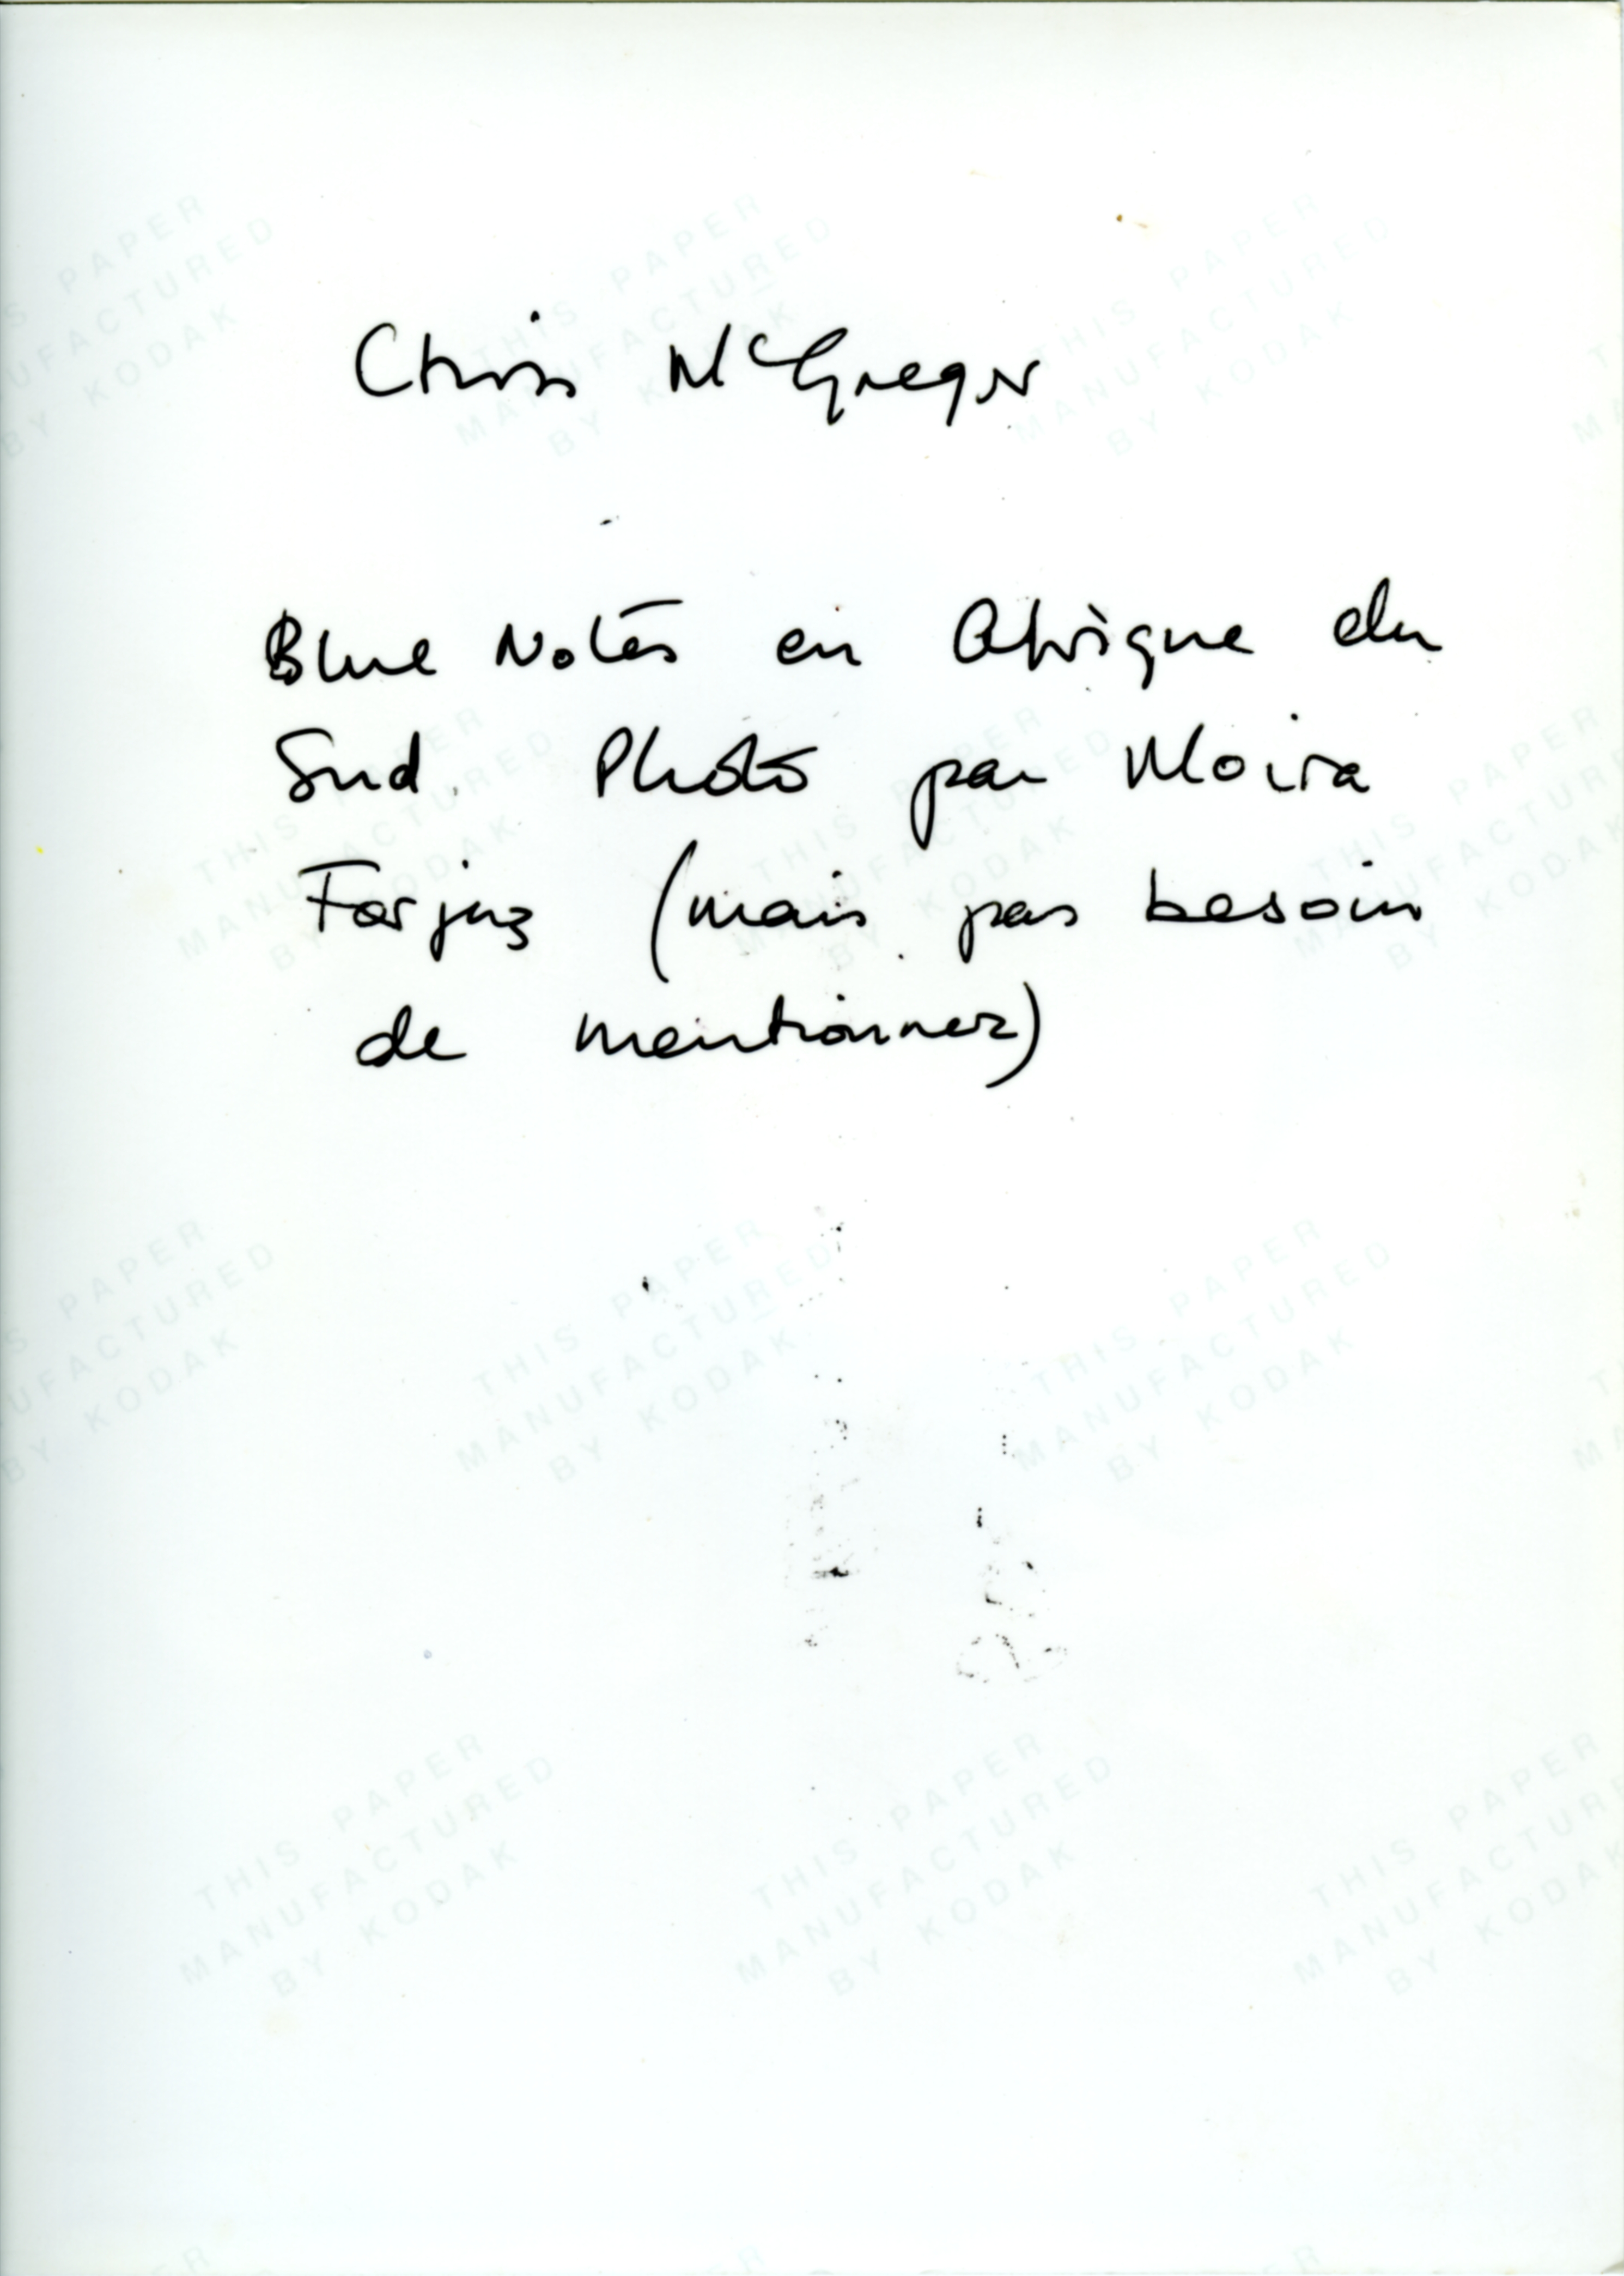 Chris McGregor
Blue Notes en Afrique du
Sud. Photo par Moira
Forjuz (mais pas besoin
de mentionner)
THIS PAPER
MANUFACTURED
BY KODAK